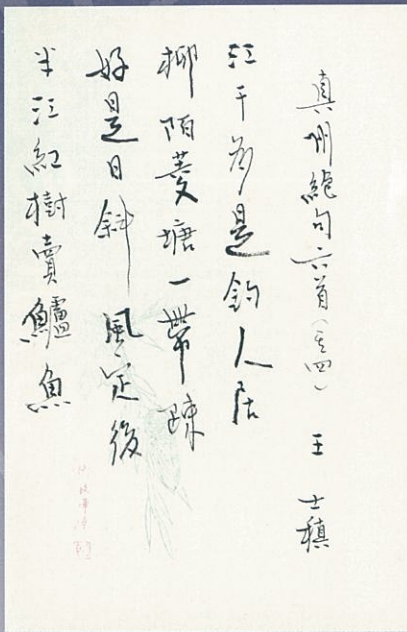 真州絕句六首(其四) 王士稹
江干都是釣人居
柳陌菱塘一帶疎
好是日斜風定後
半江紅樹賣鱸魚